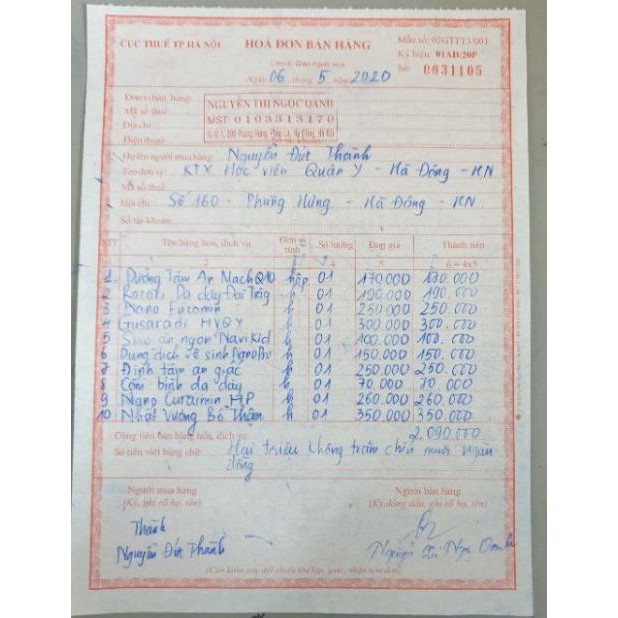 CỤC THUẾ TP HÀ NỘI
HOÁ ĐƠN BÁN HÀNG
Mẫu số: 02GTTT3/001
Ký hiệu: 01AD/20P
Số: 0031105
Ngày 06 tháng 5 năm 2020
Đơn vị bán hàng:
NGUYỄN THỊ NGỌC OANH
Mã số thuế:
MST: 0103313170
Địa chỉ:
Điện thoại:
Họ tên người mua hàng: Nguyễn Đức Thành
Tên đơn vị: KTX Học viện Quân Y - Hà Đông - HN
Mã số thuế:
Địa chỉ: Số 160 - Phùng Hưng - Hà Đông - HN
Số tài khoản:
STT Tên hàng hóa, dịch vụ Đơn vị tính Số lượng Đơn giá Thành tiền
2 4 5 6 = 4x5
1 Dưỡng Tâm An Mạch Q10 hộp 01 170.000 170.000
2 Rocori Dạ dày Đại Tràng h 01 190.000 190.000
3 Nano Fucomin h 01 250.000 250.000
4 Gusaradi HVQY h 01 300.000 300.000
5 Siro ăn ngon NaviKid h 01 100.000 100.000
6 Dung dịch vệ sinh NanoPro h 01 150.000 150.000
7 Định tâm an giấc h 01 250.000 250.000
8 Cốm bình dạ dày h 01 70.000 70.000
9 Nano Curcumin HP h 01 260.000 260.000
10 Nhất Vương Bổ Thận h 01 350.000 350.000
Cộng tiền bán hàng hóa, dịch vụ: 2.090.000
Số tiền viết bằng chữ: Hai triệu không trăm chín mươi ngàn
đồng
Người mua hàng
(Ký, ghi rõ họ, tên)
Người bán hàng
(Ký, đóng dấu, ghi rõ họ, tên)
Thành
Nguyễn Đức Thành
Nguyễn Thị Ngọc Oanh
(Cần kiểm tra, đối chiếu khi lập, giao, nhận hóa đơn)